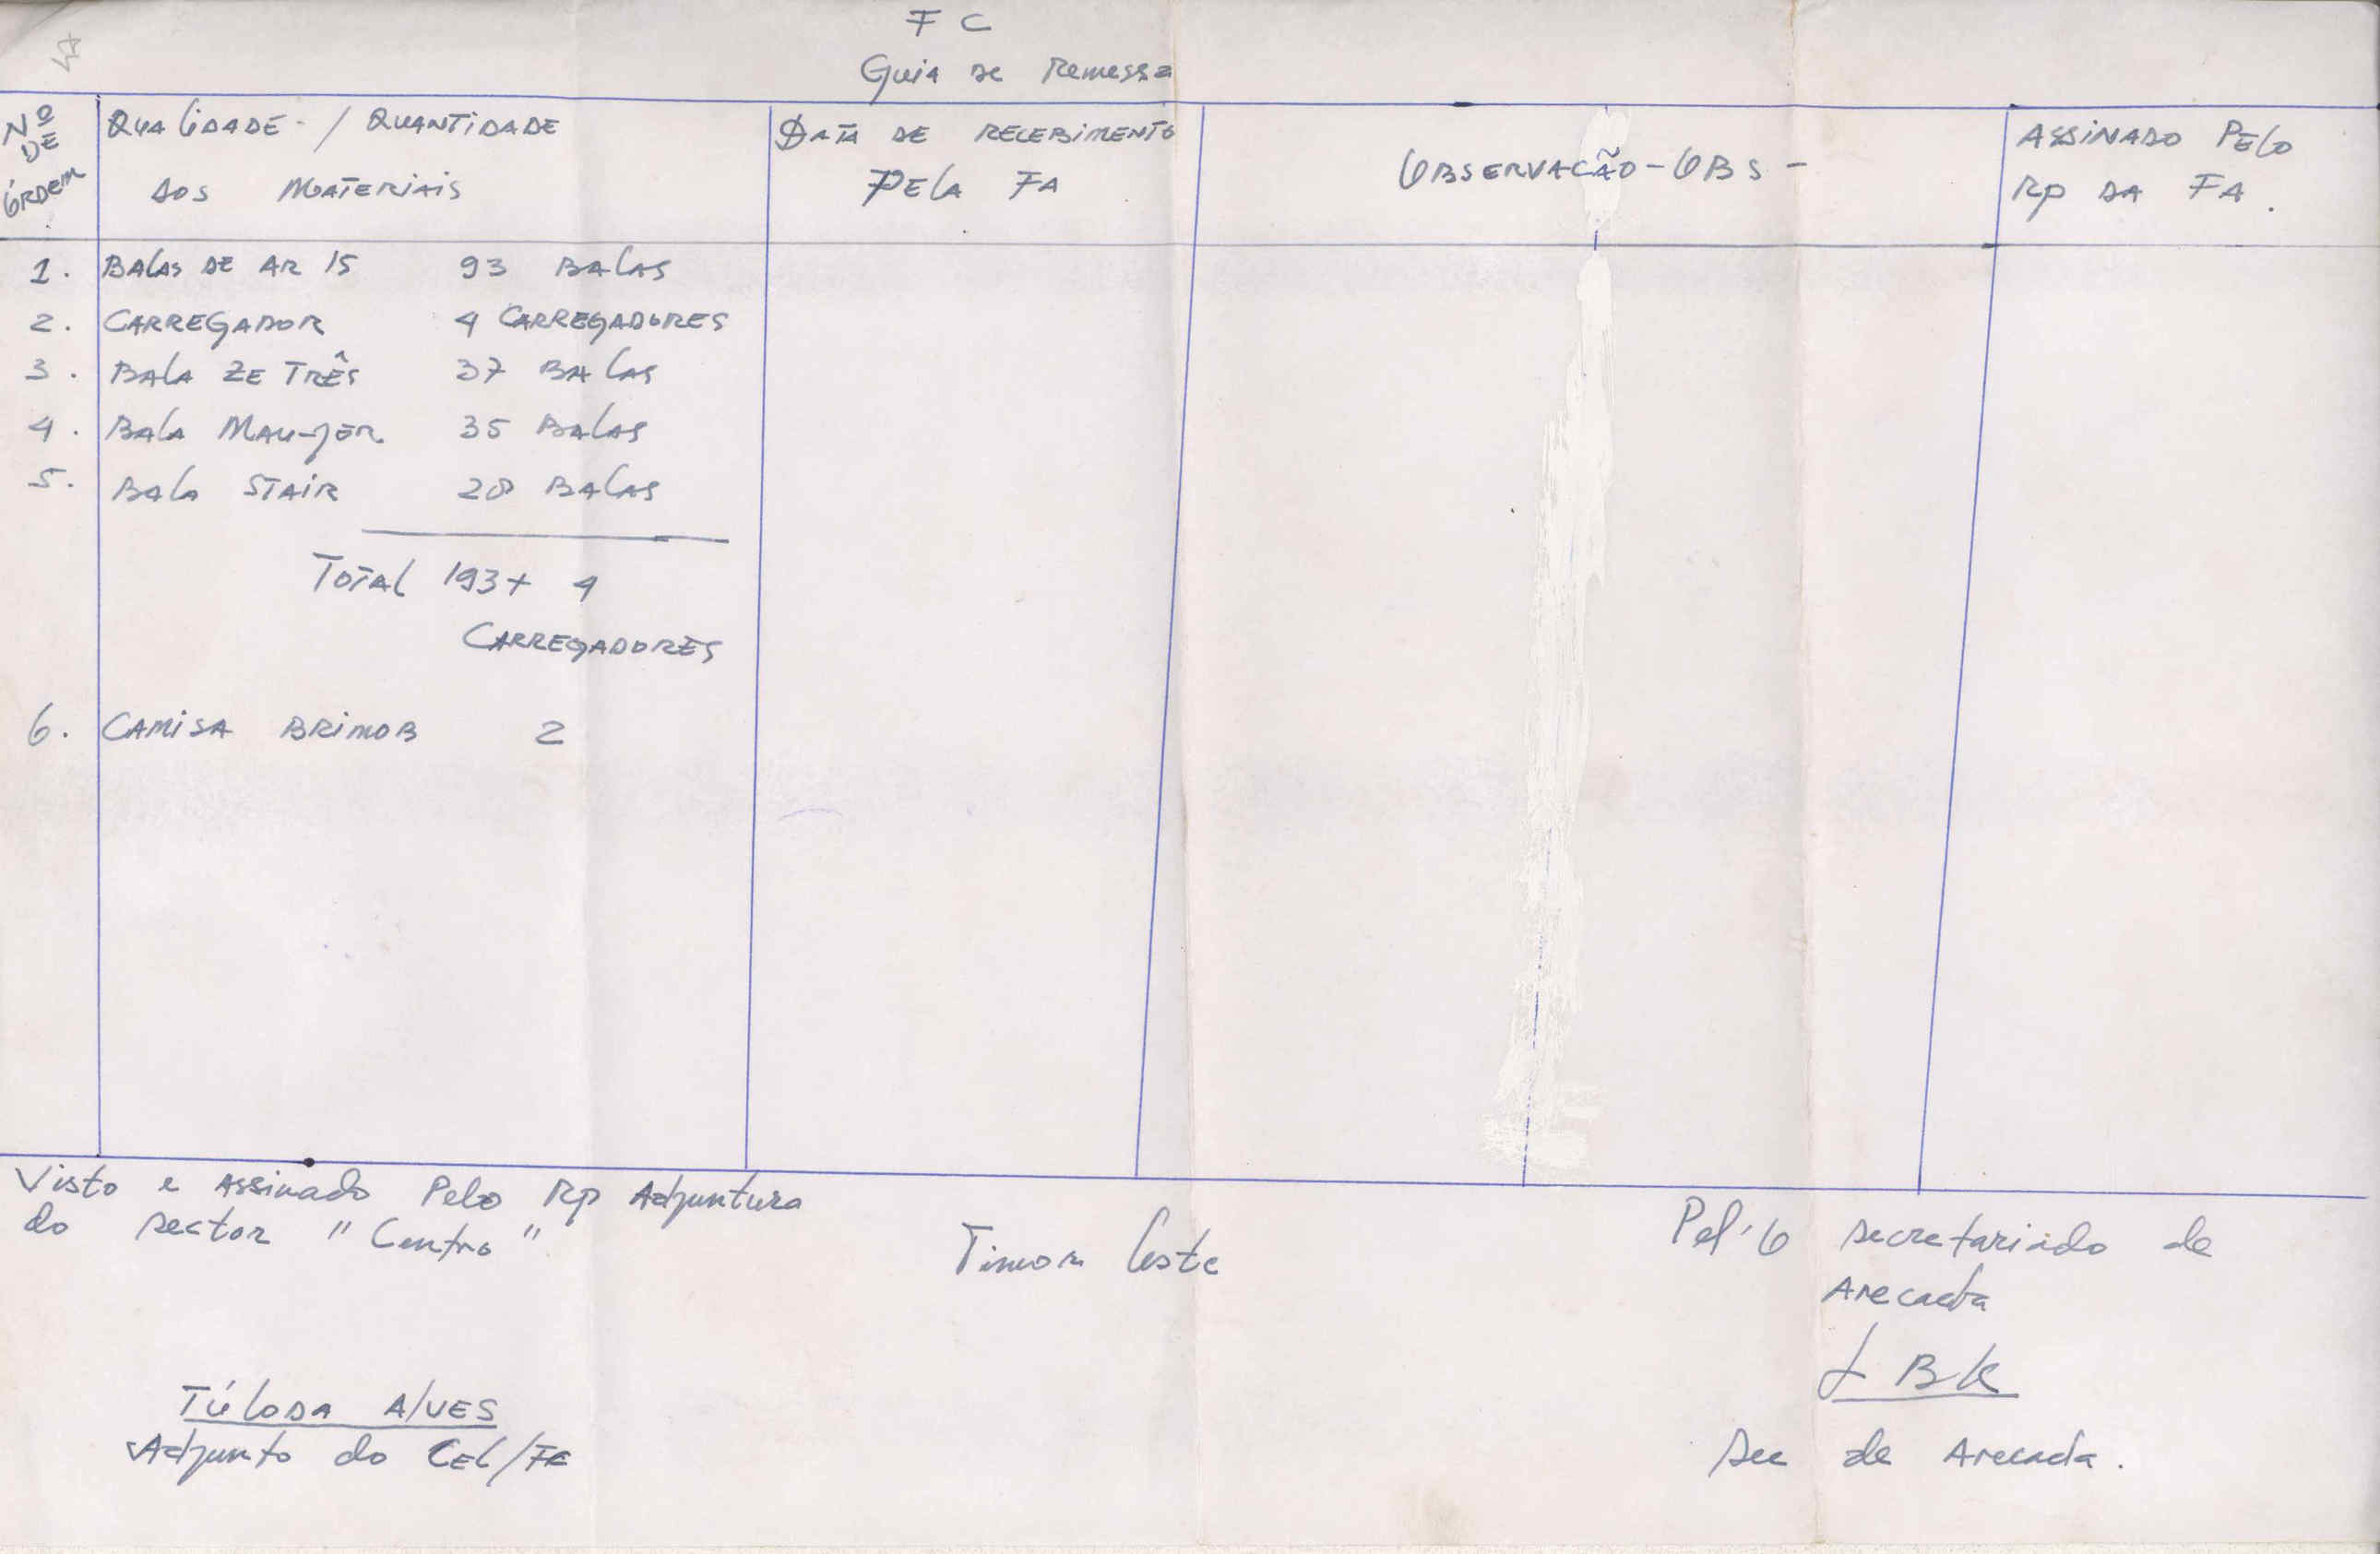 F C
Guia de Remessa
Nº DE ÓRDEM
QUALIDADE - / QUANTIDADE
DOS MATERIAIS
DATA DE RECEBIMENTO
PELA FA
OBSERVACÃO - OBS -
ASSINADO PELO
RP DA FA.
1. BALAS DE AR 15 93 BALAS
2. CARREGADOR 4 CARREGADORES
3. BALA ZE TRÊS 37 BALAS
4. BALA MAU-JER 35 BALAS
5. BALA STAIR 28 BALAS
TOTAL 193 + 4
CARREGADORES
6. CAMISA BRIMOB 2
Visto e Assinado Pelo Rp Adjuntura
do sector "Centro"
Timor Leste
Pel'O secretariado de
Arecada
L BK
Sec de Arecada.
TÚLODA ALVES
Adjunto do CEL/FC